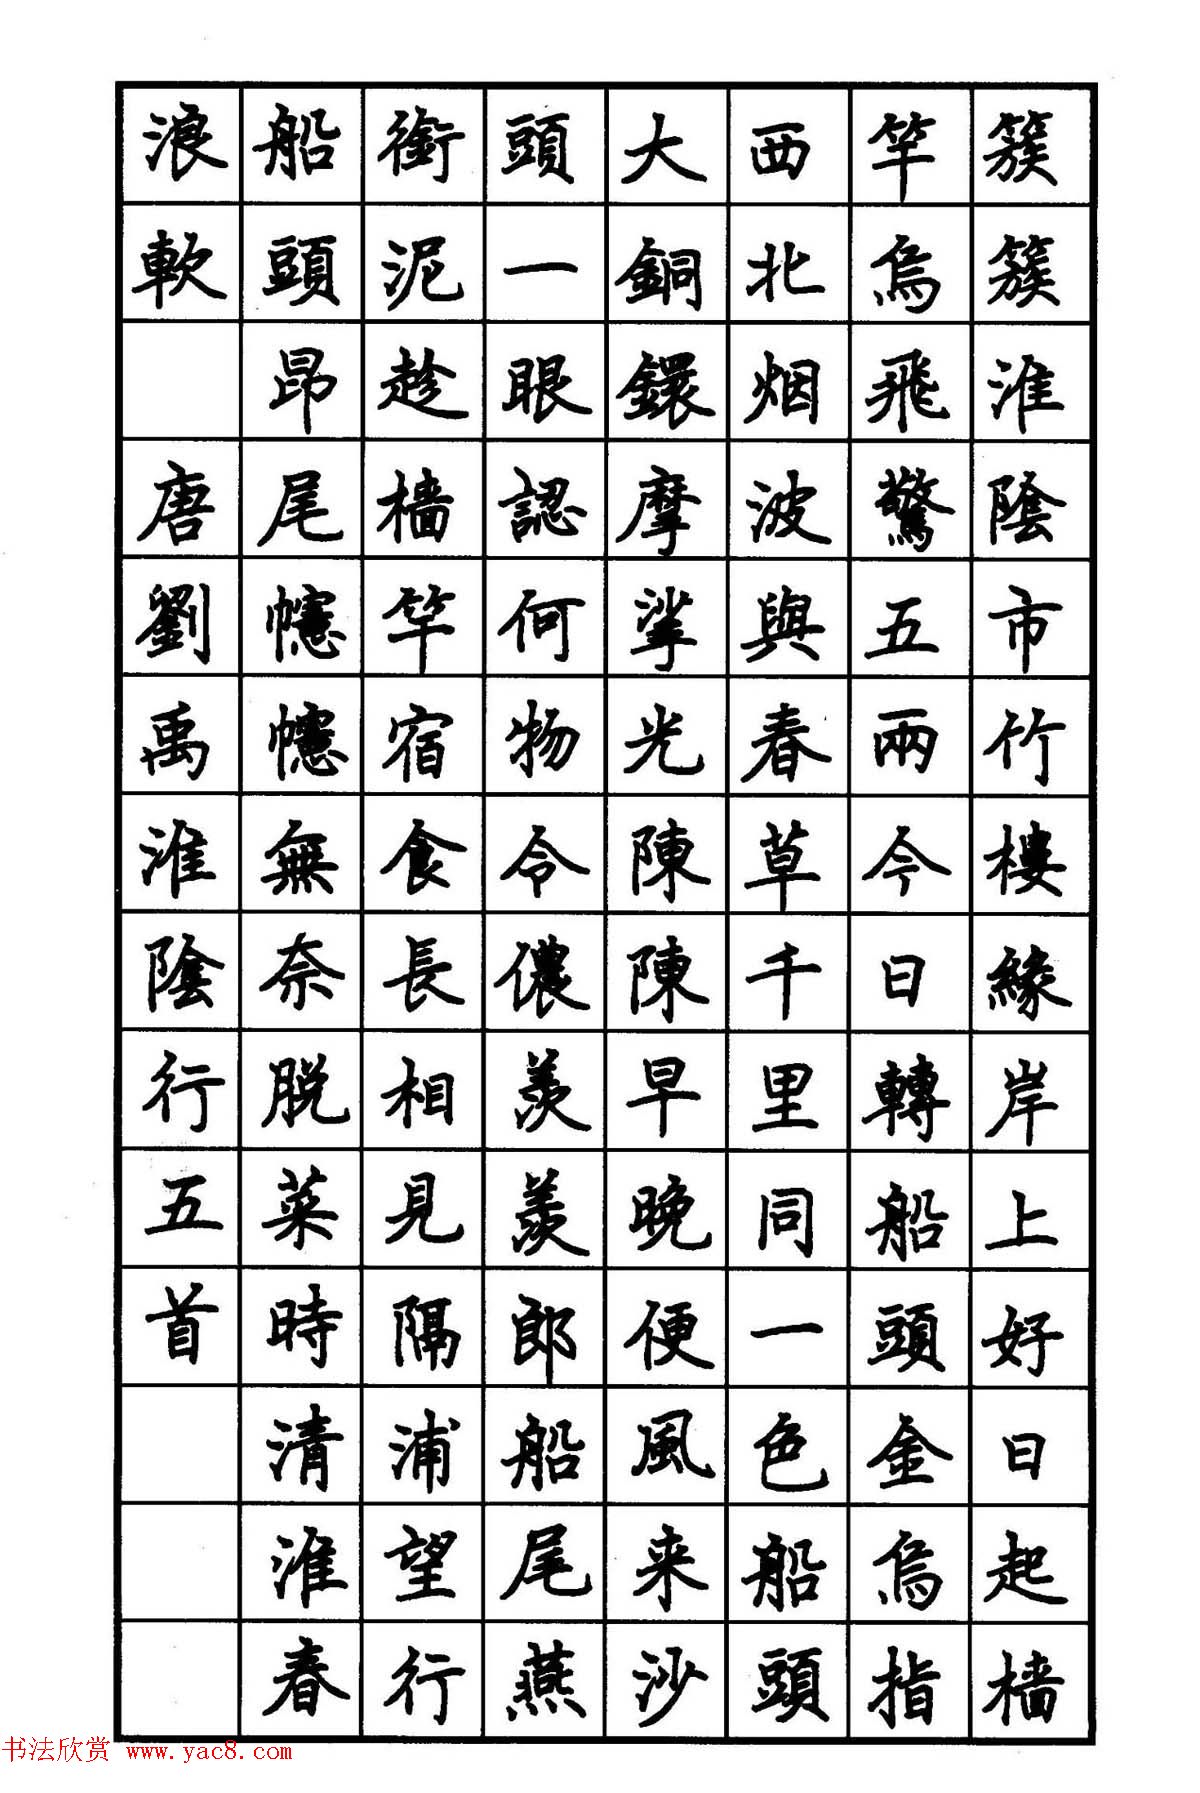 簇簇淮陰市竹樓緣岸上好日起檣
竿烏飛驚五兩今日轉船頭金烏指
西北烟波與春草千里同一色船頭
大銅鐶摩挲光陳陳早晚便風来沙
頭一眼認何物令儂羨羨郎船尾燕
銜泥趁檣竿宿食長相見隔浦望行
船頭昂尾幰幰無奈脱菜時清淮春
浪軟 唐劉禹淮陰行五首
书法欣赏 www.yac8.com